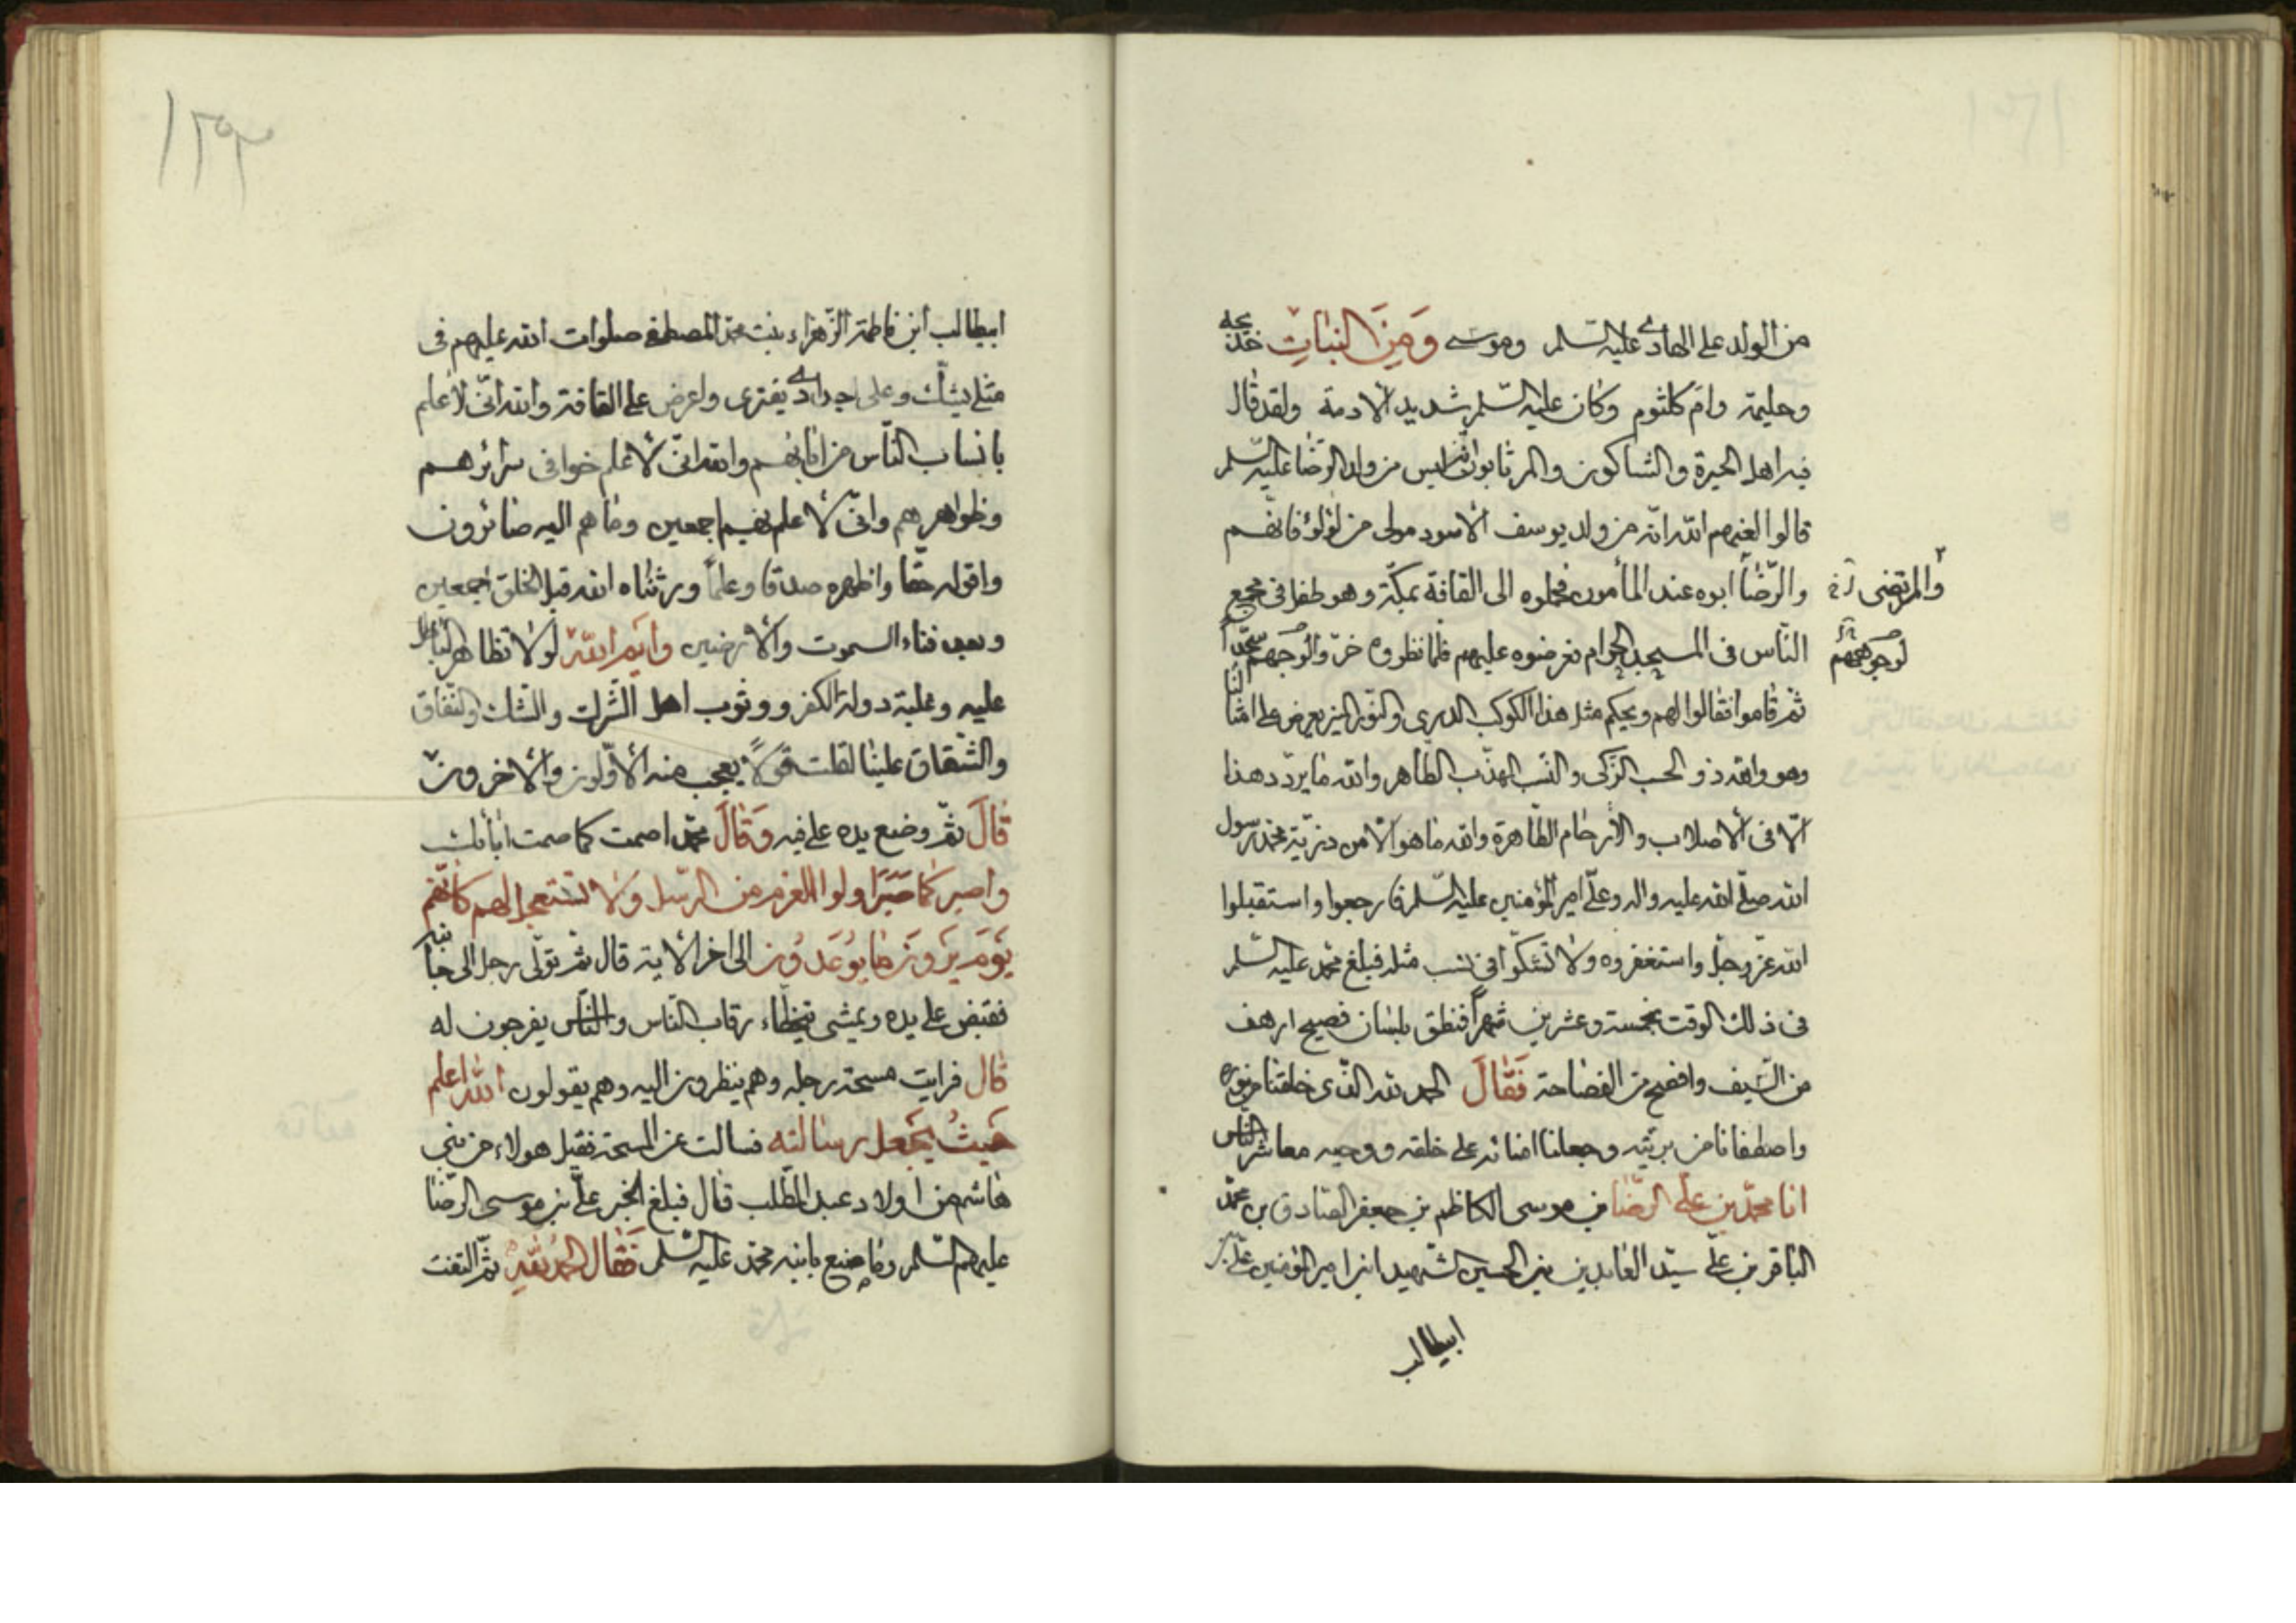 من الولد علي الهادي عليه السلم وموسى وَمِنَ البَناتِ خديجه
وحليمة وام كلثوم وكان عليه السلم شديد الادمة ولقد قال
فيه اهل الحيرة والشاكون والمرتابون انه ليس من ولد الرضا عليه السلم
قالوا لعنهم الله انه من ولد يوسف الاسود مولى من لؤلؤ فانهم
والرضا ابوه عند المأمون فحملوه الى القافة بمكة وهو طفل فى مجمع
والمرتضى
الناس فى المسجد الحرام فعرضوه عليهم فلما نظروه خروا لوجهم سجدا
لوجوههم
ثم قاموا فقالوا لهم ويحكم مثل هذا الكوكب الدرى والنور المنير يعرض على امثالنا
وهو والله ذو الحسب الزكى والنسب المهذب الطاهر والله ما يردد هذا
الا فى الاصلاب والارحام الطاهرة والله ما هو الا من ذرية محمد رسول
الله صلى الله عليه واله وعلى امير المؤمنين عليه السلم فارجعوا واستقبلوا
الله عز وجل واستغفروه ولا تشكوا فى نسب مثله فبلغ محمد عليه السلم
فى ذلك الوقت بخمسة وعشرين شهرا فنطق بلسان فصيح ارهف
من السيف وافصح من الفصاحة فَقَالَ الحمد لله الذى خلقنا من نوره
واصطفانا من بريته وجعلنا امنائه على خلقه ووحيه معاشر الناس
انا محمد بن على الرضا بن موسى الكاظم بن جعفر الصادق بن محمد
الباقر بن على سيد العابدين بن الحسين الشهيد ابن امير المؤمنين على بن
ابيطالب
١٣٣
ابيطالب ابن فاطمة الزهراء بنت محمد المصطفى صلوات الله عليهم فى
مثلى يشك وعلى اجدادى يفترى واعرض على القافة والله انى لاعلم
بانساب الناس من ابائهم والله انى لاعلم خوافى سرائرهم
وظواهرهم وانى لاعلم بهم اجمعين وما هم اليه صائرون
واقوله حقا واظهره صدقا وعلما ورثناه الله قبل الخلق اجمعين
وبعد فناء السموت والارضين وأيم الله لولا تظاهر الباطل
عليه وغلبة دولة الكفر ووثوب اهل الشرك والشك والنفاق
والشقاق علينا لقلت قولا يعجب منه الاولون والاخرون
قَالَ ثم وضع يده على فيه وَقَالَ محمد اصمت كما صمت ابائك
واصبر كما صَبَرَ اولوا العزم من الرسل ولا تستعجل لهم كانهم
يَوْمَ يَرَوْنَ مَا يُوعَدُونَ الى اخر الاية قال ثم تولى رجل الى جانبه
فقبض على يده ويمشى يتخطاء رقاب الناس والناس يفرجون له
قال فرايت مسحة رجله وهم ينظرون اليه وهم يقولون الله اعلم
حَيثُ يَجْعل رسالته فسالت عن المسحة فقيل هولاء من بنى
هاشم من اولاد عبد المطلب قال فبلغ الخبر على بن موسى الرضا
عليهم السلم وما صنع بابنه محمد عليه السلم فَقال الحمد للهِ ثم التفت